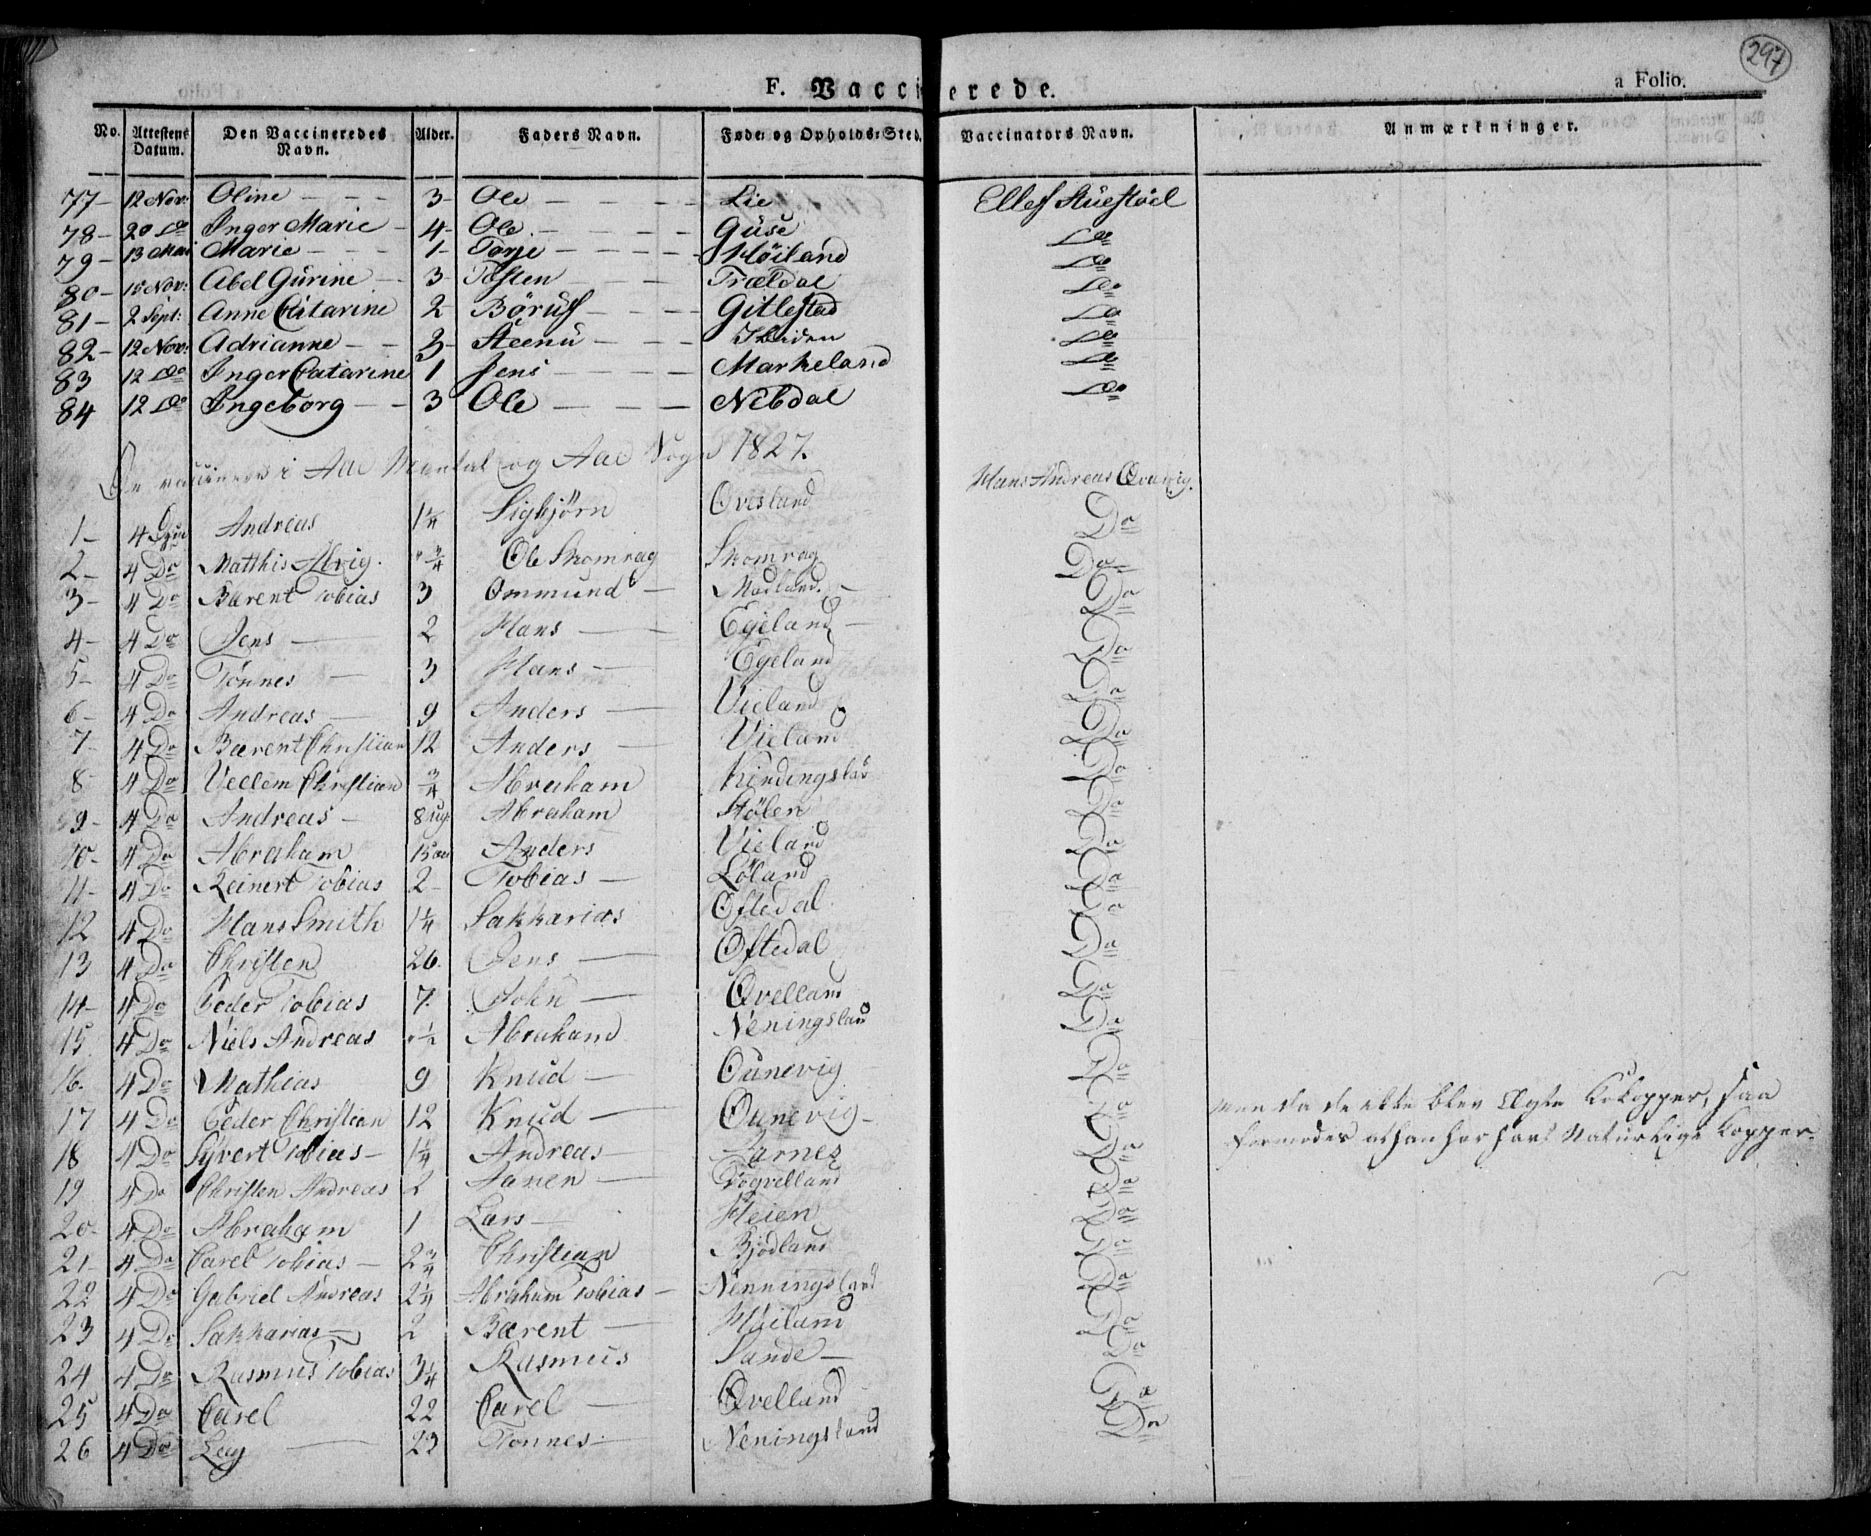 297
F. Vaccinerede. a Folio.
No. Attestens Datum. Den Vaccineredes Navn. Alder. Faders Navn. Føde- og Opholds-Sted. Vaccinators Navn. Anmærkninger.
77- 12 Nov: Oline - - - 3- Ole - - - - Lie Ellef Stuestøel
78- 20 Do Inger Marie - 4- Ole - - - - Guse Do
79- 13 Mai Marie - - - 1- Torje - - - - Høiland Do
80- 10 Nov: Abel Gurine - - 3- Tosten - - - Trældal Do
81- 2 Sept: Anne Catarine 2 Børuf - - - Gitlestad Do
82- 12 Nov: Adrianne - - 3- Steenu - - - Do
83 12 Do Inger Catarine 1 Jens - - - - Markeland Do
84 12 Do Ingeborg - - 3 Ole - - - Nebdal Do
De i Aae og Aae Sogn 1827.
1- 4 Andreas 1 1/4 Sigbjørn Øvesland Hans Andreas
Do
2- 4 Do Matthis 3/4 Ole Skomrag Skomrag Do
3- 4 Do Bærent Tobias 3 Ommund - Modland. - Do
4- 4 Do Jens - 2 Hans - Egeland - Do
5- 4 Do Tønnes - 3 Hans - Egeland Do
6- 4 Do Andreas - 9 Anders - Vieland Do
7- 4 Do Bærent Christian 12 Anders - Vieland Do
8- 4 Do Vellem Christian 3/4 Abraham Do
9- 4 Do Andreas - 8 Abraham Stølen Do
10- 4 Do Abraham 15 Anders Vieland Do
11- 4 Do Reinert Tobias 2- Tobias - Løland Do
12 4 Do Hans Smith 1 1/4 Sakkarias Oftedal Do
13 4 Do Christen 26. Jens - Oftedal Do
14- 4 Do Peder Tobias 7. John - Qvelland Do
15. 4 Do Niels Andreas 1/2 Abraham Neningsland Do
16. 4 Do Mathias 9 Knud - Ounevig Do
17 4 Do Peder Christian 12 Knud - Ounevig - Do Men da de ikke blev Ægte Kokopper, saa
formodes at han har havt Naturlige Kopper.
18 4 Do Syvert Tobias - 1 1/4 Andreas - Do
19 4 Do Christen Andreas 2 Aanen - Do
20- 4 Do Abraham 1 Lars - Heien Do
21- 4 Do Carel Tobias - 2 3/4 Christian Bjødland Do
22 4 Do Gabriel Andreas 2 1/4 Abraham Tobias - Nenningsland Do
23 4 Do Sakkarias - 2 Bærent - Høiland Do
24 4 Do Rasmus Tobias 3 1/4 Rasmus Sande - Do
25 4 Do Carel 22 Carel - Qvelland Do
26 4 Do 23 Tønnes - Neningsland Do